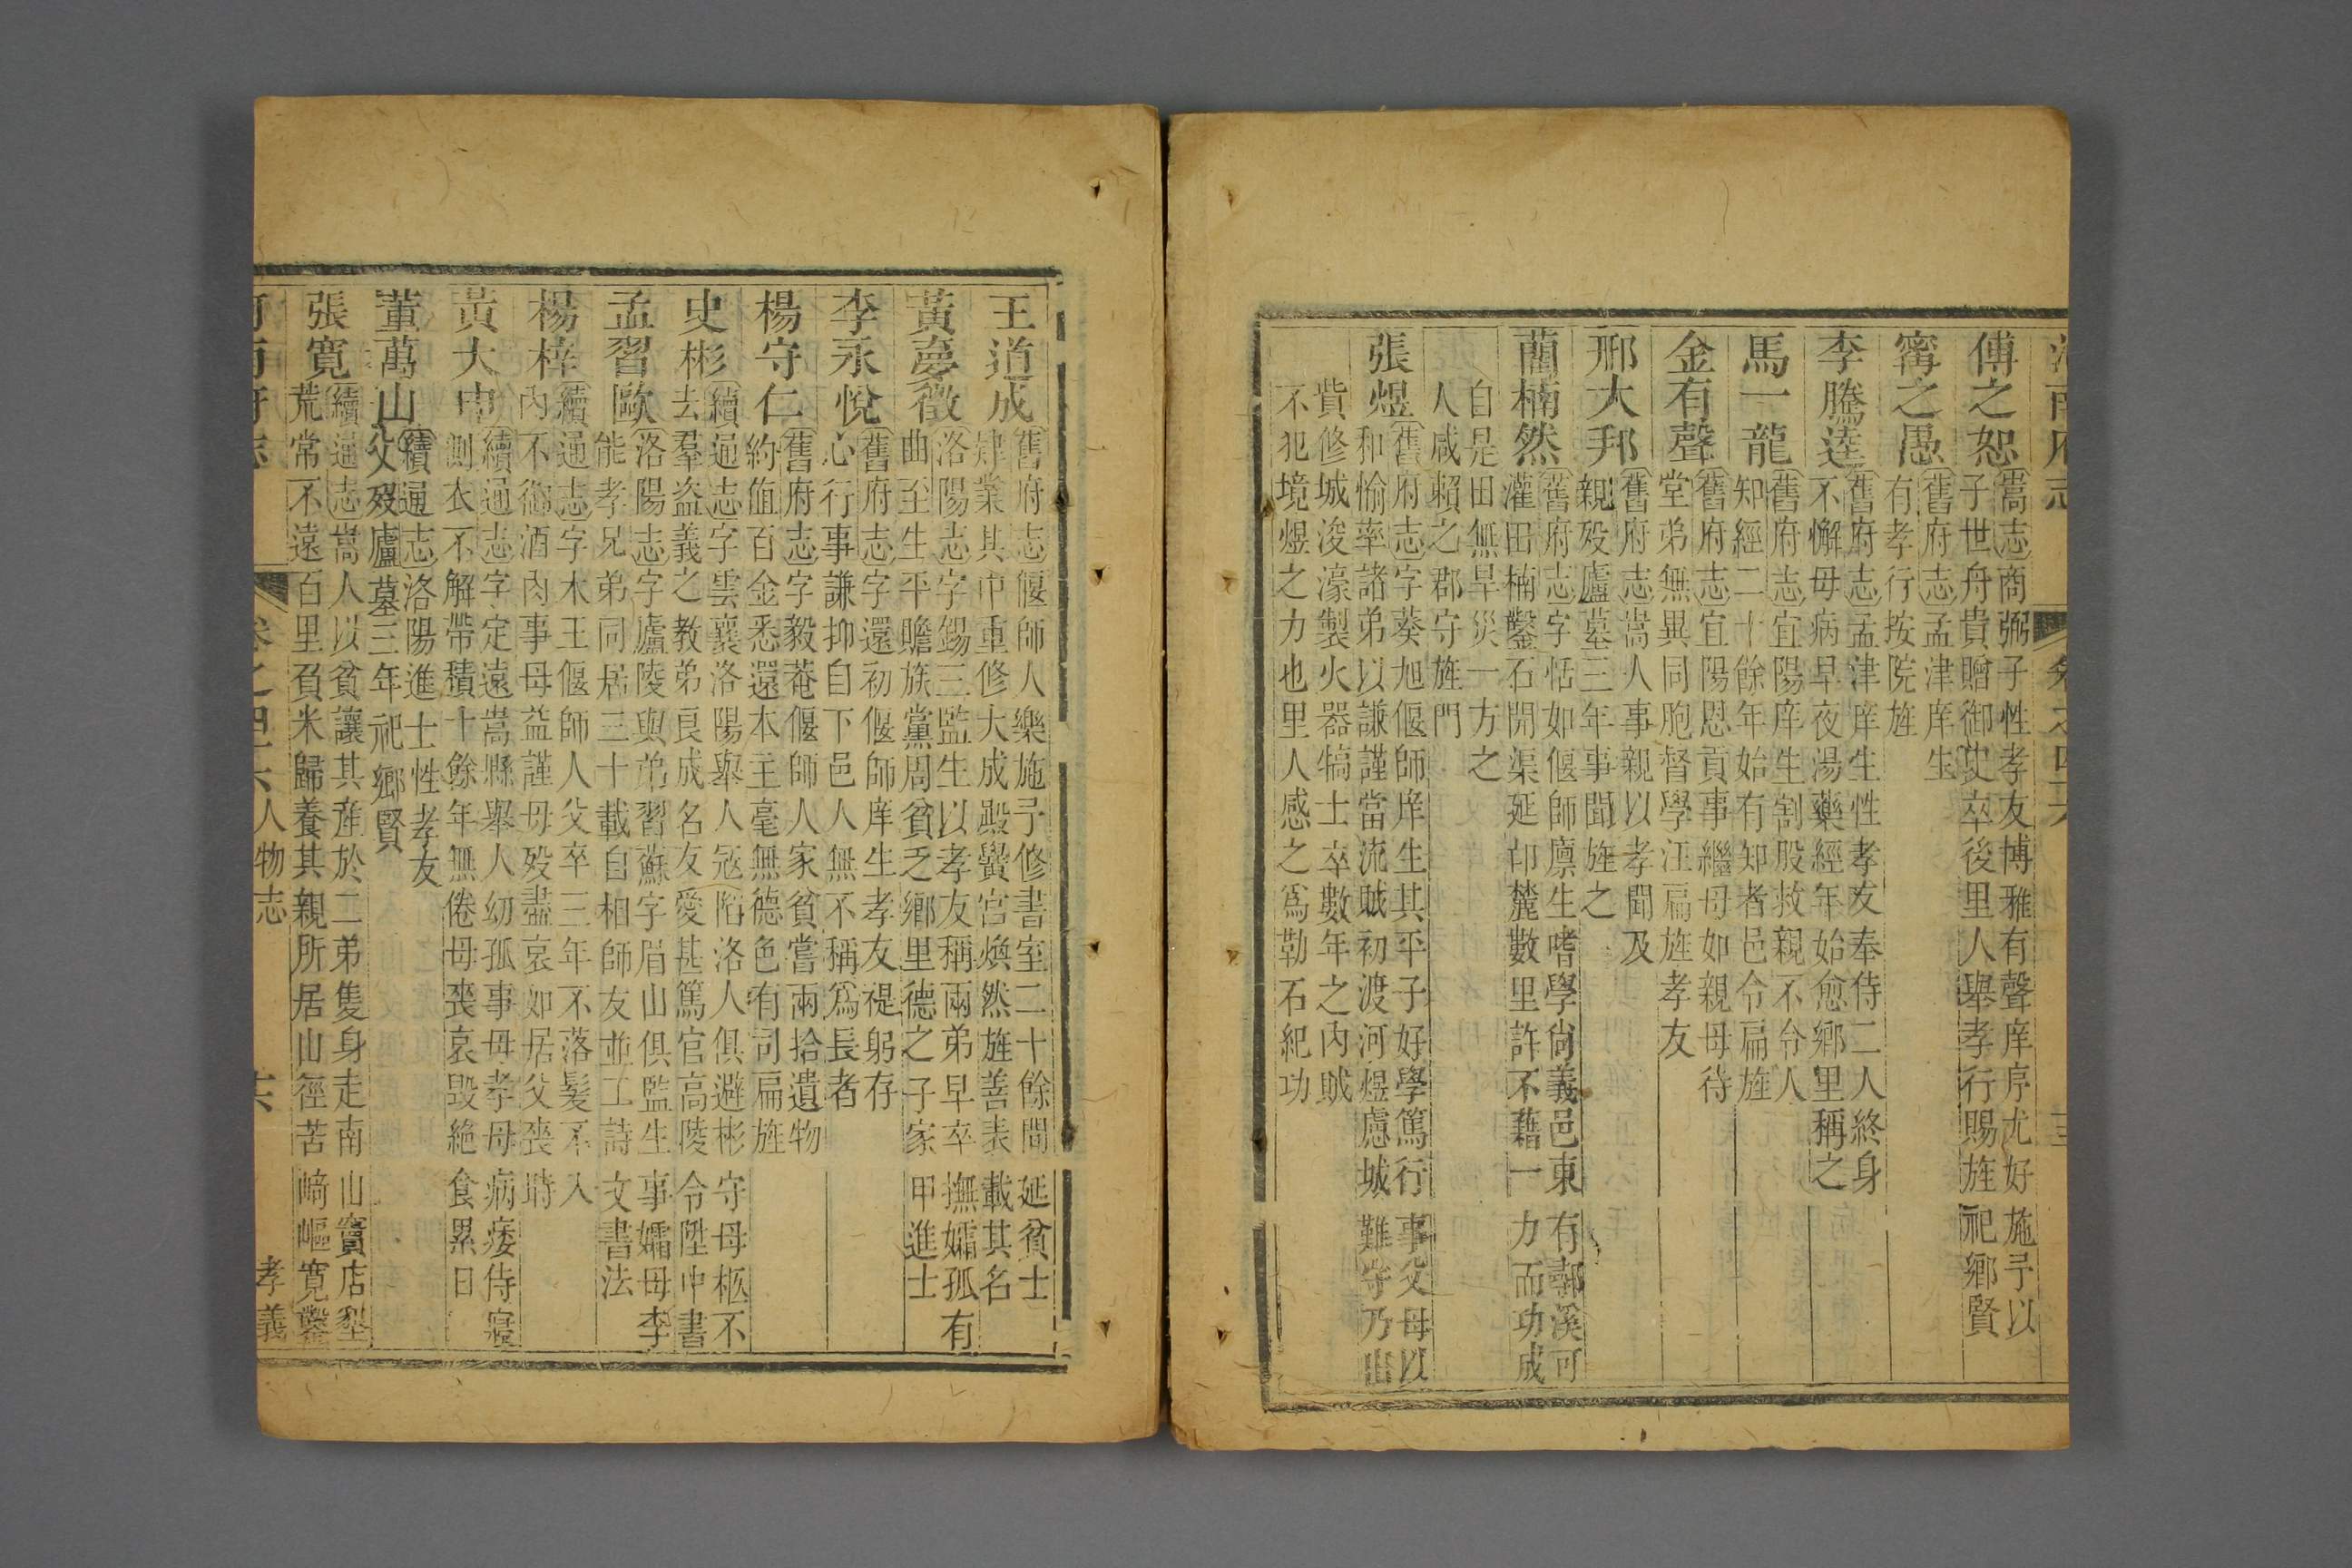 河南府志
卷之四十六
傅之恕
嵩志商弼子性孝友博雅有聲庠序尤好施予以
子世舟貴贈御史卒後里人舉孝行賜旌祀鄉賢
甯之愚
舊府志孟津庠生
有孝行按院旌
李騰逵
舊府志孟津庠生性孝友奉侍二人終身
不懈母病早夜湯藥經年始愈鄉里稱之
馬一龍
舊府志宜陽庠生割股救親不令人
知經二十餘年始有知者邑令扁旌
金有聲
舊府志宜陽恩貢事繼母如親母待
堂弟無異同胞督學汪扁旌孝友
邢大邦
舊府志嵩人事親以孝聞及
親歿廬墓三年事聞旌之
藺楠然
舊府志字恬如偃師廩生嗜學尙義邑東有鄩溪可
灌田楠鑿石開渠延卬麓數里許不藉一力而功成
自是田無旱災一方之
人咸賴之郡守旌門
張煜
舊府志字葵旭偃師庠生其平子好學篤行事父母以
和愉率諸弟以謙謹當流賊初渡河煜慮城難守乃出
貲修城浚濠製火器犒士卒數年之內賊
不犯境煜之力也里人感之爲勒石紀功
王道成
舊府志偃師人樂施予修書室二十餘間延貧士
肄業其中重修大成殿黌宮煥然旌善表載其名
黃夢徵
洛陽志字錫三監生以孝友稱兩弟早卒撫孀孤有
曲至生平贍族黨周貧乏鄉里德之子家甲進士
李永悅
舊府志字還初偃師庠生孝友禔躬存
心行事謙抑自下邑人無不稱爲長者
楊守仁
舊府志字毅菴偃師人家貧嘗兩拾遺物
約値百金悉還本主毫無德色有司扁旌
史彬
續通志字雲襄洛陽舉人寇陷洛人俱避彬守母柩不
去羣盜義之教弟良成名友愛甚篤官高陵令陞中書
孟習歐
洛陽志字廬陵與弟習蘇字眉山俱監生事孀母李
能孝兄弟同居三十載自相師友並工詩文書法
楊梓
續通志字木王偃師人父卒三年不落髮不入
內不御酒肉事母益謹母歿盡哀如居父喪時
黃大中
續通志字定遠嵩縣舉人幼孤事母孝母病痿侍寢
側衣不解帶積十餘年無倦母喪哀毀絶食累日
董萬山
續通志洛陽進士性孝友
父歿廬墓三年祀鄉賢
張寬
續通志嵩人以貧讓其產於二弟隻身走南山竇店墾
荒常不遠百里負米歸養其親所居山徑苦﨑嶇寬鑿
河南府志
卷之四十六
人物志
孝義